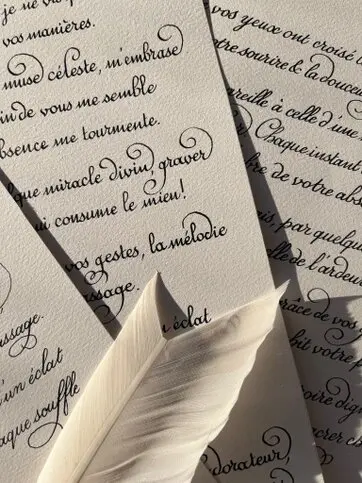 je ne vi
vos manières.
muse céleste, m'embrase
in de vous me semble
bsence me tourmente.
que miracle divin, graver
ui consume le mien!
vos gestes, la mélodie
ssage.
éclat
dorateur,
vos yeux ont croisé
tre sourire & la douceu
areille à celle d'une
Chaque instant
ire de votre abs
is, par quelqu
elle de l'ardeu
râce de vo
oit votre p
oire dig
acrer c
ssage.
'un éclat
aque souffle